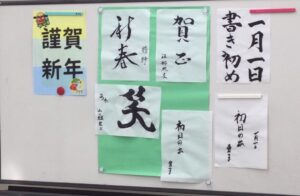 謹賀
新年
新春
賀正
一月一日
書き初め
笑
初日の出
初日の出
一月一日